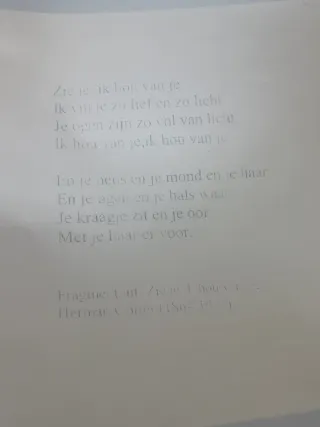 Zie je ik hou van je
Ik vin je zo lief en zo licht
Je ogen zijn zo vol van licht
Ik hou van je, ik hou van je
En je neus en je mond en je haar
En je ogen en je hals waar
Je kraagje zit en je oor
Met je haar er voor.
Fragment uit: Zie je ik hou van
Herman Gorter